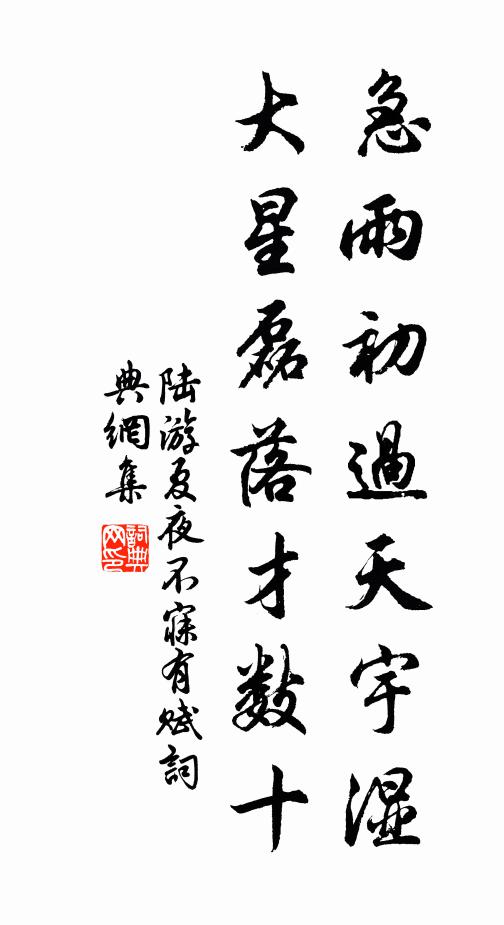 急雨初過天宇濕
大星磊落才數十
陆游夏夜不寐有赋詞
典網集
詞典
网印